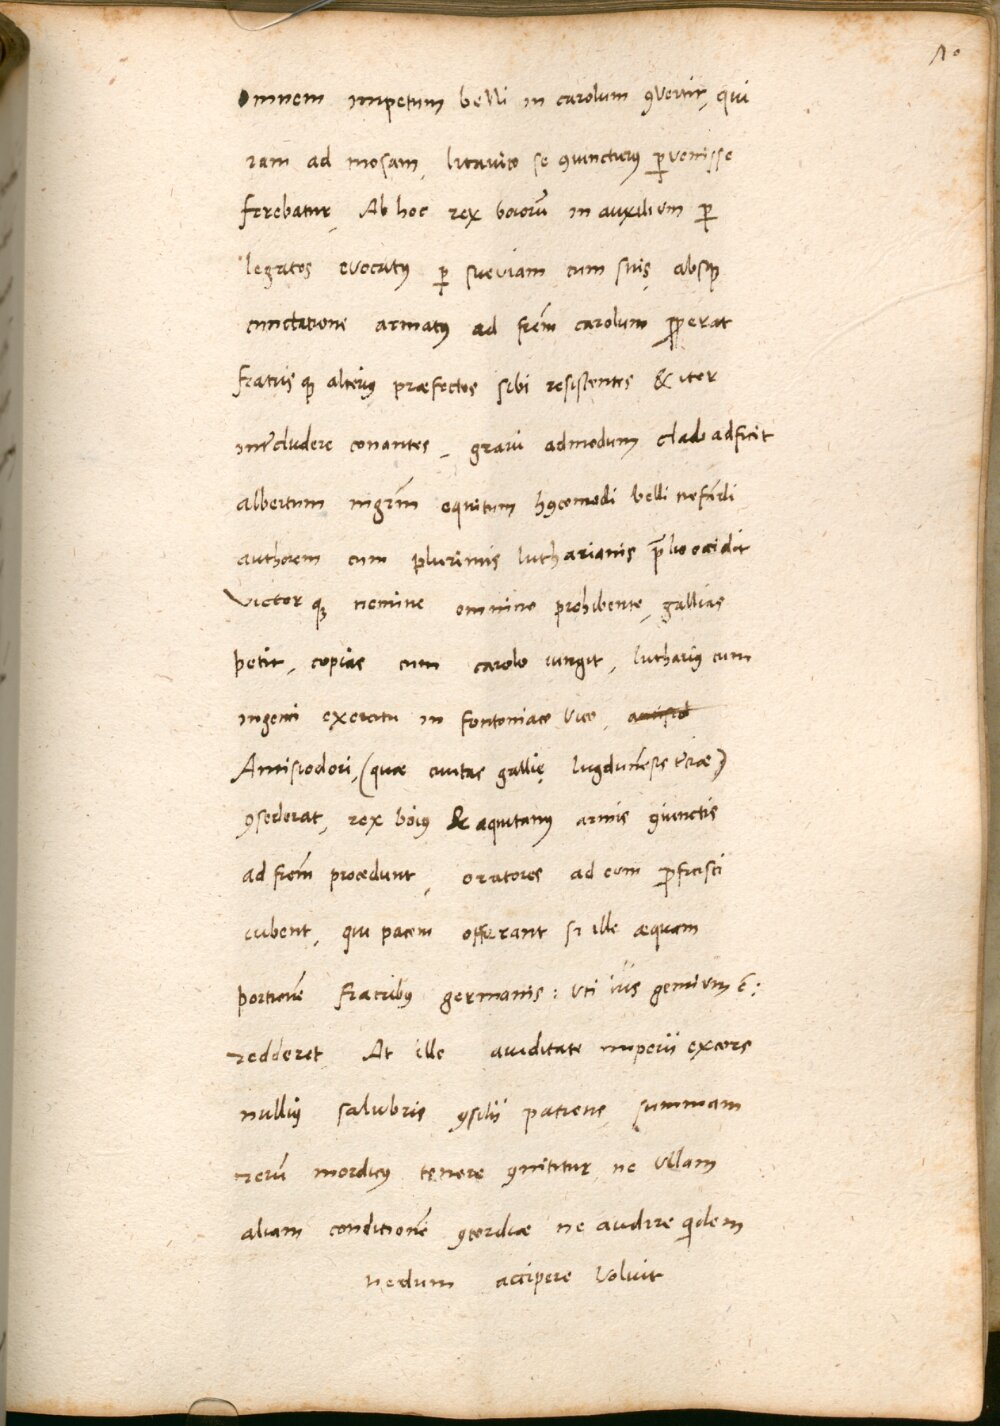 10
Omnem impetum belli in carolum ꝯvertit, qui
iam ad mosam, lutavico se ꝯiuncturꝰ ꝑvenisse
ferebatur, Ab hoc rex boiorū in auxilium ꝑ
legatos evocatꝰ ꝑ sueviam cum suis absqꝫ
cunctatione armatꝰ ad frēm carolum ꝓperat
fratris qꝫ alteriꝰ præfectos sibi resistentes & iter
intˀcludere conantes, gravi admodum clade adficit
albertum ingrīm equitum hꝰcomedi belli nefādi
authorem cum plurimis lutharianis p̄lio occidit
Victor qꝫ nemine omnino prohibente, gallias
petit, copias cum carolo iungit, luthariꝰ cum
ingenti exercitu in fontoniaco vico,
Antisiodori, (quæ civitas gallię lugdunēsis tˀciæ)
ꝯsederat, rex boiꝰ & aquitanꝰ armis ꝯiunctis
ad frēm procedunt, oratores ad eum ꝓficisci
iubent, qui pacem offerant si ille æquam
portionē fratribꝰ germanis: uti ius gentium ē:
redderet, At ille aviditate imperii excors
nulliꝰ salubris ꝯsilii patiens, summam
rerū mordicꝰ tenere ꝯnititur, ne ullam
aliam conditionē ꝯcordiæ ne audire qidem
nedum accipere voluit